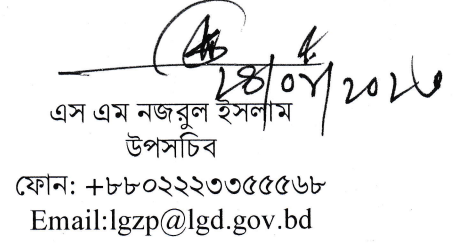 এস এম নজরুল ইসলাম
উপসচিব
ফোন: +৮৮০২২২৩৩৫৫৫৬৮
Email:lgzp@lgd.gov.bd